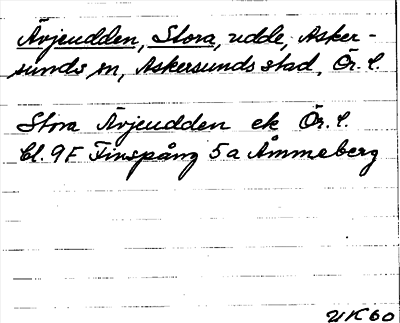 Ävjeudden, Stora, udde, Asker-
sunds sn, Askersunds stad, Ör. l.
Stora Ävjeudden ek Ör. l.
bl. 9F Finspång 5a Åmmeberg
UK60